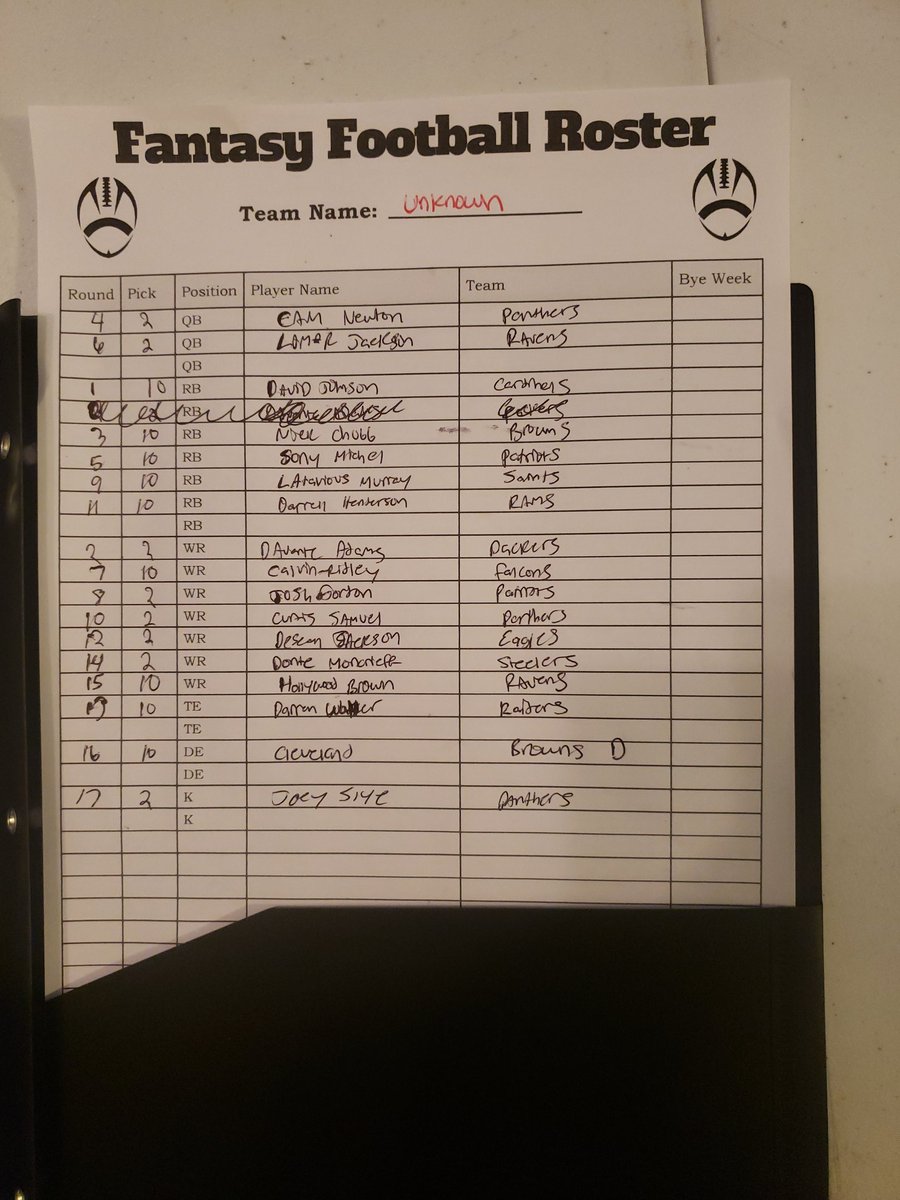 Fantasy Football Roster
Team Name: unknown
Round Pick Position Player Name Team Bye Week
4 2 QB CAM Newton Panthers
6 2 QB LAMAR Jackson RAVENS
QB
1 10 RB DAVID Johnson Cardinals
RB
3 10 RB Nick Chubb Browns
5 10 RB Sony Michel Patriots
9 10 RB LAtavious Murray Saints
11 10 RB Darrell Henderson RAMS
RB
2 2 WR DAvante Adams Packers
7 10 WR Calvin Ridley falcons
8 2 WR JOSH Gordon
10 2 WR Curtis SAMUEL Panthers
12 2 WR Desean JACKSON Eagles
14 2 WR Donte Moncrieff Steelers
15 10 WR Hollywood Brown RAVENS
10 TE Darren Waller Raiders
TE
16 10 DE Cleveland Browns D
DE
17 2 K JOEY SIYE PAnthers
K